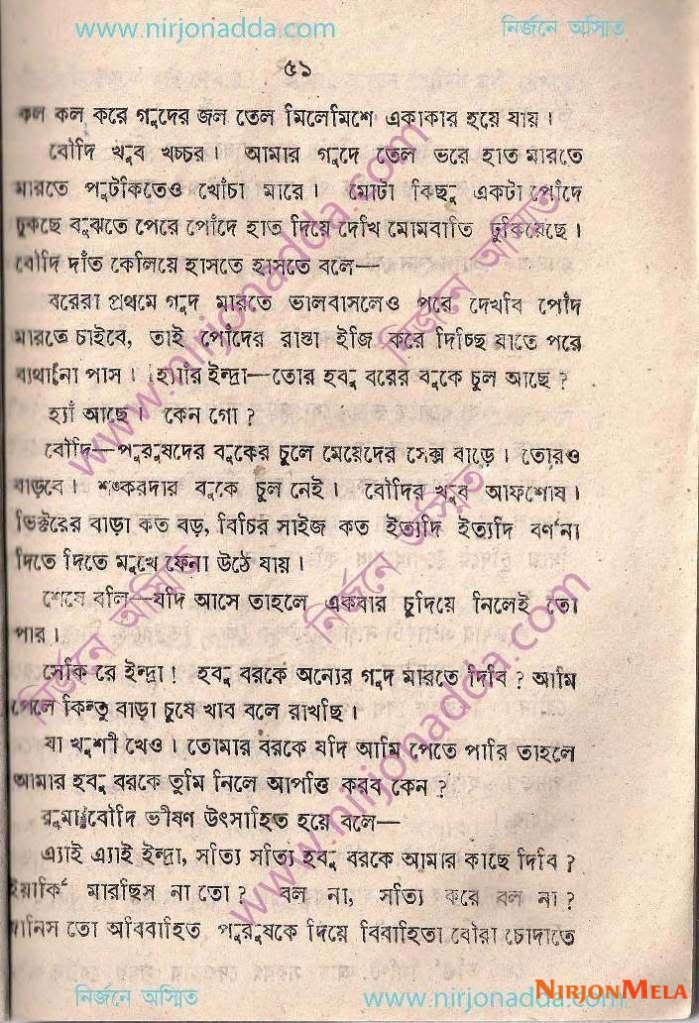 www.nirjonadda.com
নির্জনে অস্মিত
৫১
কল কল করে গুদের জল তেল মিলেমিশে একাকার হয়ে যায়।
বৌদি খুব খচ্চর। আমার গুদে তেল ভরে হাত মারতে
মারতে পুটকিতেও খোঁচা মারে। মোটা কিছু একটা পোঁদে
ঢুকছে বুঝতে পেরে পোঁদে হাত দিয়ে দেখি মোমবাতি ঢুকিয়েছে।
বৌদি দাঁত কেলিয়ে হাসতে হাসতে বলে—
বরেরা প্রথমে গুদ মারতে ভালবাসলেও পরে দেখবি পোঁদ
মারতে চাইবে, তাই পোঁদের রাস্তা ইজি করে দিচ্ছি যাতে পরে
ব্যথা না পাস। হ্যাঁরে ইন্দ্রা—তোর হবু বরের বুকে চুল আছে?
হ্যাঁ আছে। কেন গো?
বৌদি—পুরুষদের বুকের চুলে মেয়েদের সেক্স বাড়ে। তোরও
বাড়বে। শঙ্করদার বুকে চুল নেই। বৌদির খুব আফশোষ।
ভিক্টরের বাড়া কত বড়, বিচির সাইজ কত ইত্যদি ইত্যদি বর্ণনা
দিতে দিতে মুখে ফেনা উঠে যায়।
শেষে বলি—যদি আসে তাহলে একবার চুদিয়ে নিলেই তো
পার।
সেকি রে ইন্দ্রা! হবু বরকে অন্যের গুদ মারতে দিবি? আমি
পেলে কিন্তু বাড়া চুষে খাব বলে রাখছি।
যা খুশী খেও। তোমার বরকে যদি আমি পেতে পারি তাহলে
আমার হবু বরকে তুমি নিলে আপত্তি করব কেন?
রুমা বৌদি ভীষণ উৎসাহিত হয়ে বলে—
এ্যাই এ্যাই ইন্দ্রা, সত্যি সত্যি হবু বরকে আমার কাছে দিবি?
ইয়ার্কি মারছিস না তো? বল না, সত্যি করে বল না?
জানিস তো অবিবাহিত পুরুষকে দিয়ে বিবাহিতা বৌরা চোদাতে
নির্জনে অস্মিত
www.nirjonadda.com
NIRJONMELA